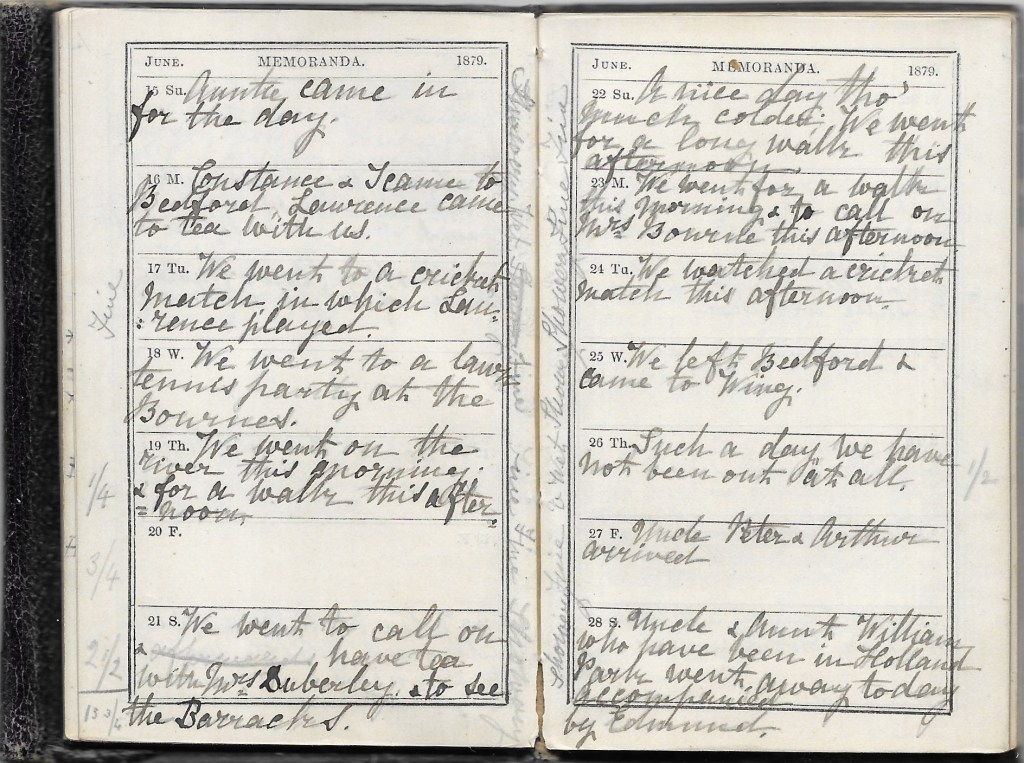 JUNE. MEMORANDA. 1879.
15 Su. Auntie came in
for the day.
16 M. Constance & I came to
Bedford. Lawrence came
to tea with us.
17 Tu. We went to a cricket
match in which Law-
:rence played.
18 W. We went to a lawn
tennis party at the
Bournes.
19 Th. We went on the
river this morning
& for a walk this after
=noon.
20 F.
21 S. We went to call on
& have tea
with Mrs Duberley & to see
the Barracks.
Fine
1/4
3/4
2 1/2
JUNE. MEMORANDA. 1879.
22 Su. A nice day tho'
much colder. We went
for a long walk this
afternoon.
23 M. We went for a walk
this morning & to call on
Mrs Bourne this afternoon
24 Tu. We watched a cricket
match this afternoon.
25 W. We left Bedford &
came to Wing.
26 Th. Such a day we have
not been out at all.
27 F. Uncle Peter & Arthur
arrived
28 S. Uncle & Aunt William
who have been in Holland
Park went away today
accompanied
by Edmund.
1/2